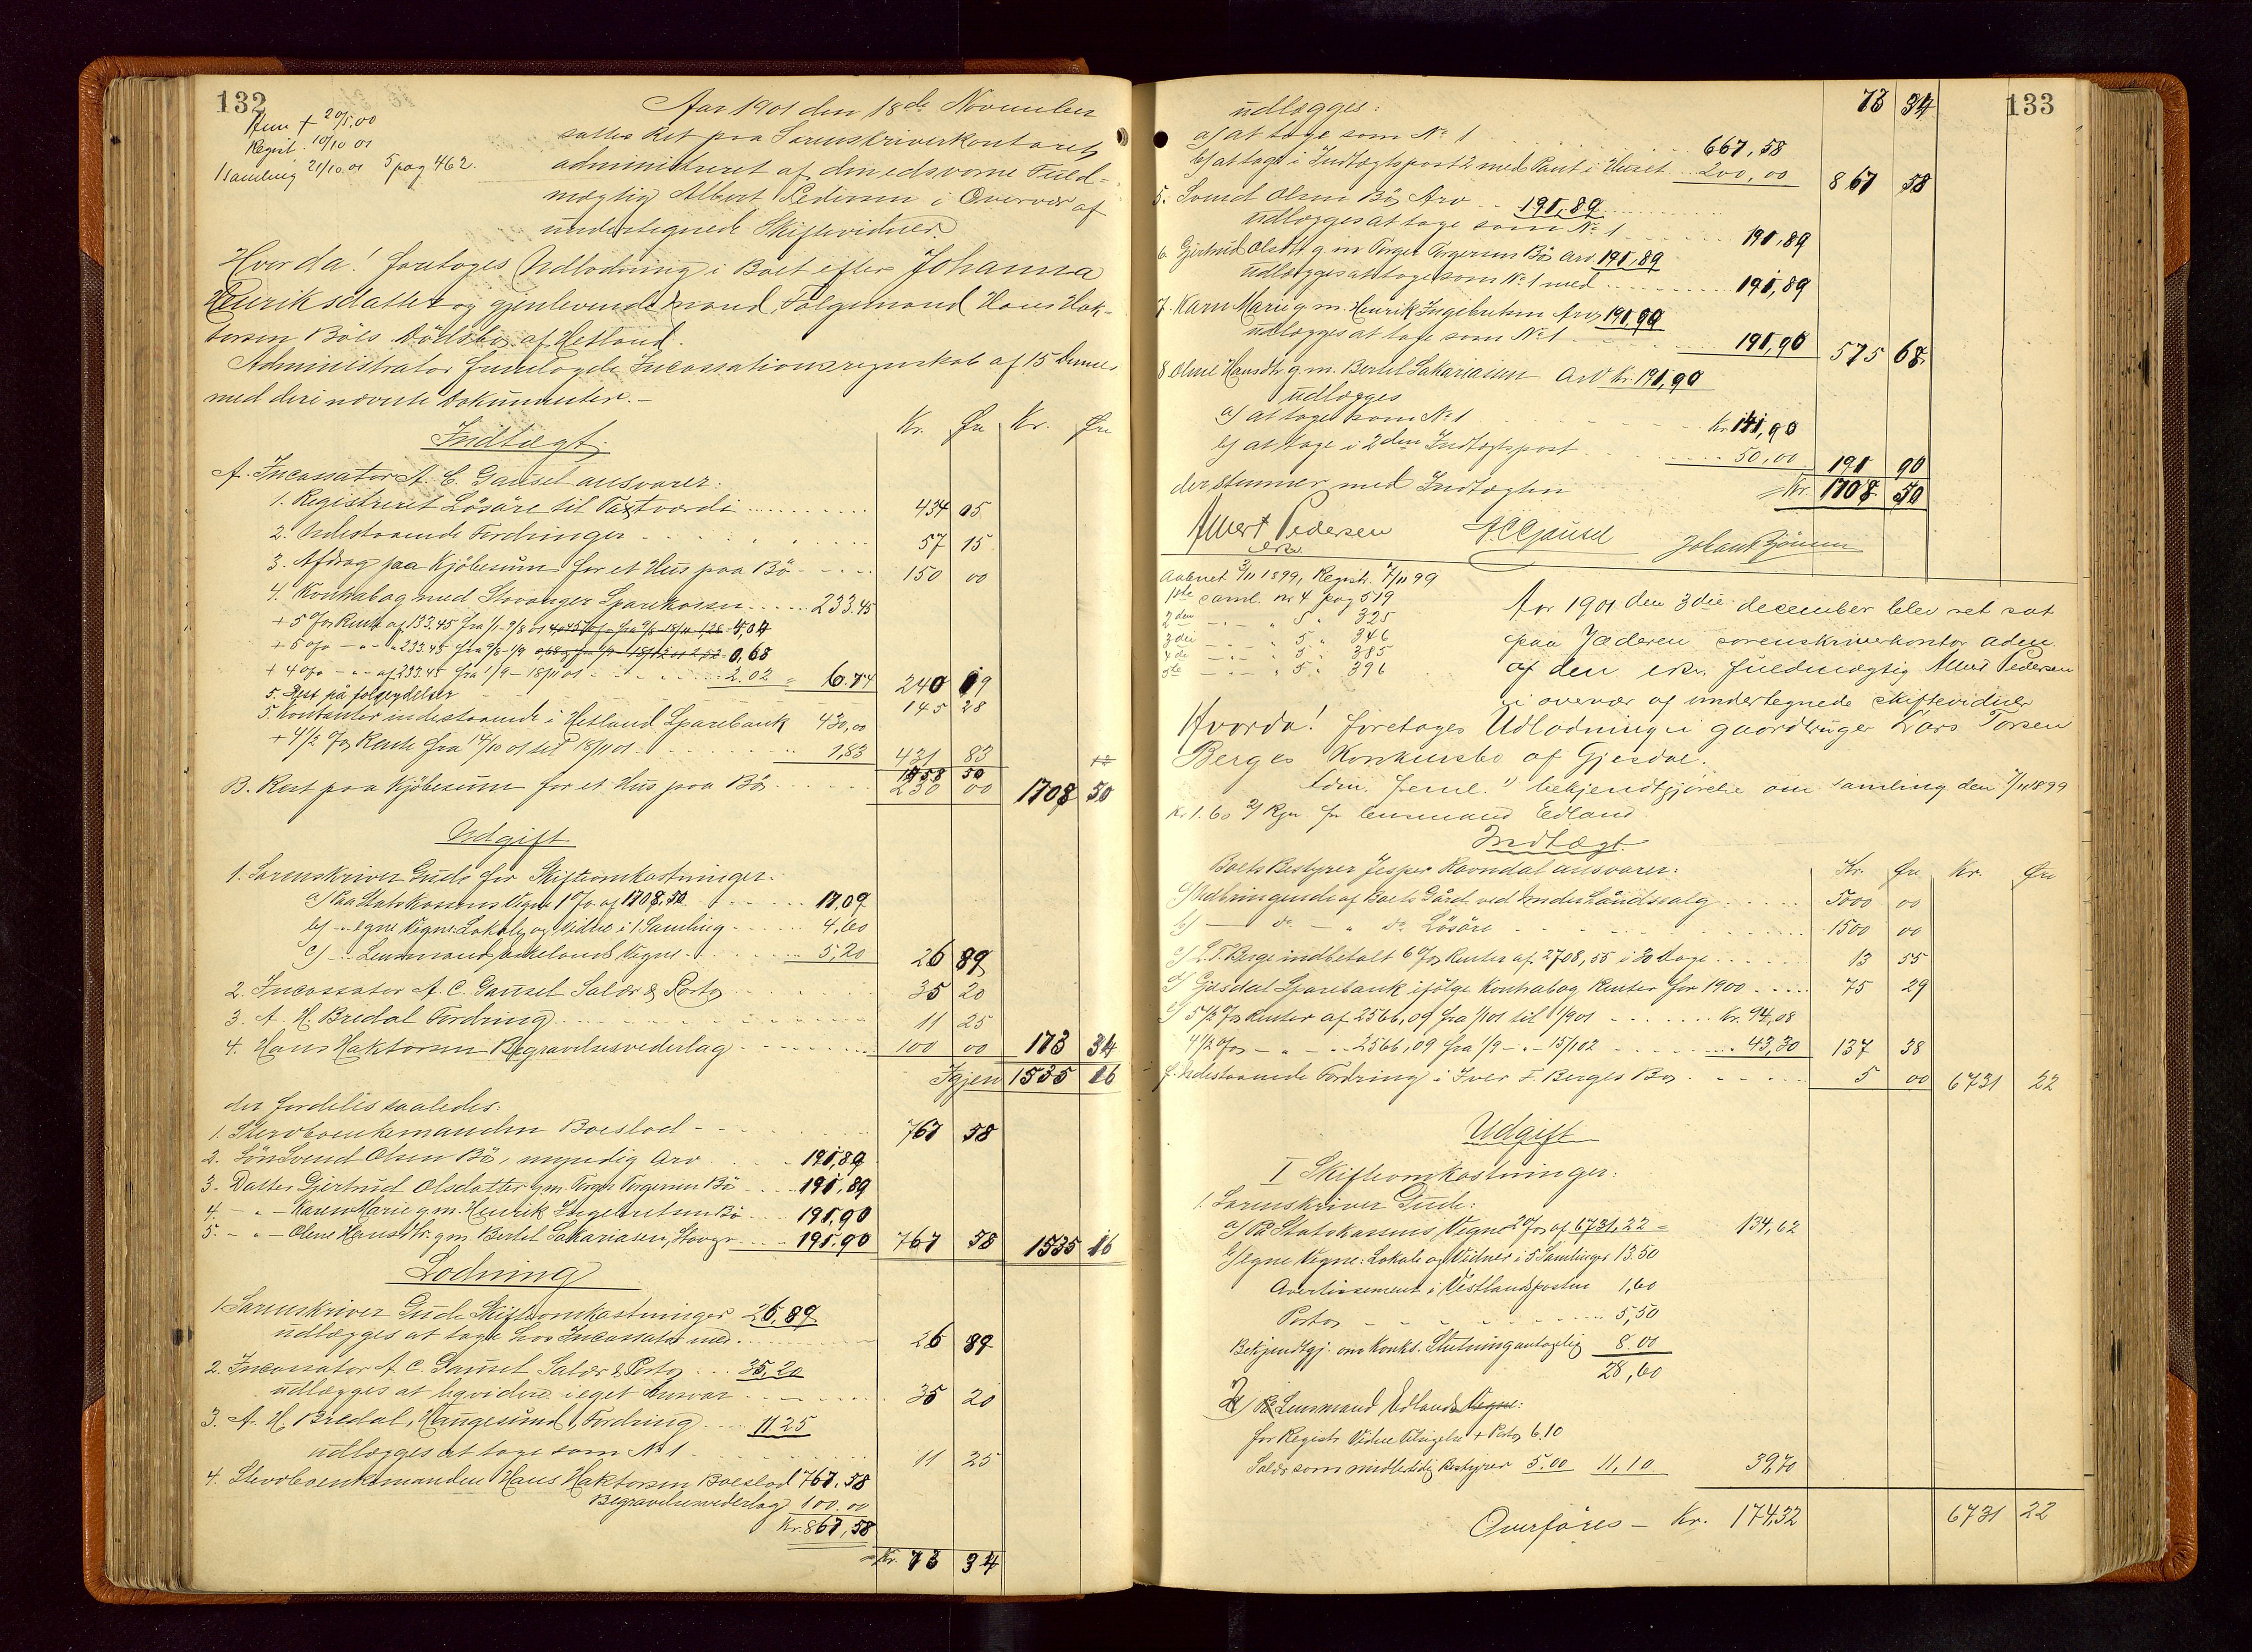 132
Hun + 20/5.00
Regist. 10/10 01
1 samling 21/10.01 5 pag 462.
Aar 1901 den 18de November
sattes Ret paa Sorenskriverkontoret,
administreret af den edsvorne Fuld-
mægtig Albert Pedersen i Overvær af
undertegnede Skiftevidner
Hvorda! foretoges Udlodning i Boet efter Johanna
Henriksdatter og gjenlevende mand, Følgemand Hans Hak-
torsen Böes Dödsbo af Hetland.
Administrator fremlagde Incassationsregnskab af 15 dennes
med deri nævnte Dokumenter. -
Indtægt.
Kr. Øre Kr. Øre
A. Incassator A. C. Gausel ansvarer:
1. Registreret Lösöre til Taxtværdi 434 05
2. Udestaaende Fordringer 57 15
3. Afdrag paa Kjöbesum for et Hus paa Bö 150 00
4. Kontrabog med Stavanger Sparekasse 233.45
+ 5 % Rente af 133.45 fra 1/1-9/8 01 4,04
+ 5 % - " - " 233.45 fra 9/8-1/9 0,68
+ 4 % - " - af 233.45 fra 1/9 - 18/11 01 2.02 = 6.74 240 19
5. Rest på følgeydelser 145 28
5. Kontanter indestaaende i Hetland Sparebank 430,00
+ 4 1/2 % Rente fra 14/10 01 til 18/11 01 1,83 431 83
1458 50
B. Rest paa Kjöbesum for et Hus paa Bö 250 00 1708 50
Udgift
1. Sorenskriver Gude for Skifteomkostninger:
a) Paa Statskassens Vegne 1 % af 1708,50 17.09
b) - egne Vegne: Lokale og Vidne i 1 Samling 4,60
c) - Lensmand Vegne 5,20 26 89
2. Incassator A. C. Gausel Salær & Porto 35 20
3. A. H. Bredal Fordring 11 25
4. Hans Haktorsen Begravelsesvederlag 100 00 173 34
Igjen 1535 16
der fordeles saaledes:
1. Stervboenkemanden Boeslod 767 58
2. Sön Svend Olsen Bö, myndig Arv 191,89
3. Datter Gjertrud Olsdatter g. m. Torger Torgersen Bö 191,89
4. - " - Karen Marie g. m. Henrik Ingebretsen Bö 191,90
5. - " - Oline Hansdtr. g. m. Bertel Sakariasen, Stavgr. 191.90 767 58 1535 16
Lodning
1. Sorenskriver Gude Skifteomkostninger 26,89
udlægges at tage hos Incassator med 26 89
2. Incassator A. C. Gausel Salær & Porto 35,20
udlægges at liqvidere i eget Ansvar 35 20
3. A. H. Bredal, Haugesund, Fordring 11.25
udlægges at tage som No 1 11 25
4. Stervboenkemanden Hans Haktorsen Boeslod 767,58
Begravelsesvederlag 100.00
Kr. 867,58
Kr. 73 34
133
73 34
udlægges:
a) at tage som No 1 667,58
b) at tage i Indtægtspost 2 med Pant i Huset 200,00 867 58
5. Svend Olsen Bö Arv 191,89
udlægges at tage som No 1 191,89
6. Gjertrud Olsdtr. g m Torger Torgersen Bö Arv 191,89
udlægges at tage som No 1 med 191,89
7. Karen Marie g. m. Henrik Ingebretsen Arv 191,90
udlægges at tage som No 1 191,90 575 68
8 Oline Hansdtr g. m. Bertel Sakariasen Arv Kr. 191,90
udlægges
a) at tage som No 1 Kr 141,90
b) at tage i 2den Indtægtspost 50,00 191 90
der stemmer med Indtægten Kr. 1708 50
Albert Pedersen A. C. Gausel
eksr.
Aabnet 3/11 1899, Regist. 7/11 99
1ste saml. nr 4 pag 519
2den - " - " 5 " 325
3die - " - " 5 " 346
4de - " - " 5 " 385
5te - " - " 5 " 396
Aar 1901 den 3die december blev ret sat
paa Jæderen sorenskriverkontor adm.
af den eksr. fuldmægtig Albert Pedersen
i overvær af undertegnede skiftevidner
Hvorda! foretoges Udlodning i gaardbruger Lars Torsen
Berges Konkursbo af Gjesdal.
Adm. freml. 1) bekjendtgjørelse om samling den 7/11 1899
Kr 1.60 2) Rgn. fr lensmand Edland
Indtægt.
Boets Bestyrer Jesper Ravndal ansvarer: Kr. Øre Kr. Øre
a) Udbringende af Boets Gård ved Underhåndssalg 5000 00
b) - do - " do Lösöre 1500 00
c) L. T. Berge indbetalt 6 % Renter af 2708,55 i 30 Dage 13 55
d) Gjesdal Sparebank ifölge Kontrabog Renter for 1900 75 29
e) 5 1/2 % Renter af 2566,09 fra 1/1 01 til 1/9 01 Kr. 94,08
4 1/2 % - " - 2566,09 fra 1/9 - " - 15/1 02 43,30 137 38
f. Udestaaende Fordring i Iver T. Berges Bo 5 00 6731 22
Udgift
I Skifteomkostninger:
1. Sorenskriver Gude:
a) På Statskassens Vegne 2 % af 6731,22 = 134,62
b) egne Vegne: Lokale og Vidner i 5 Samlinger 13.50
Avertissement i Vestlandsposten 1,60
Porto 5,50
Bekjendtgj. om Konks. Slutning antagelig 8.00
28,60
2) Lensmand Edland Vegne:
for Registr. Vidne + Porto 6.10
Salær som midlertidig Bestyrer 5.00 11,10 39,70
Overføres - Kr. 174,32 6731 22